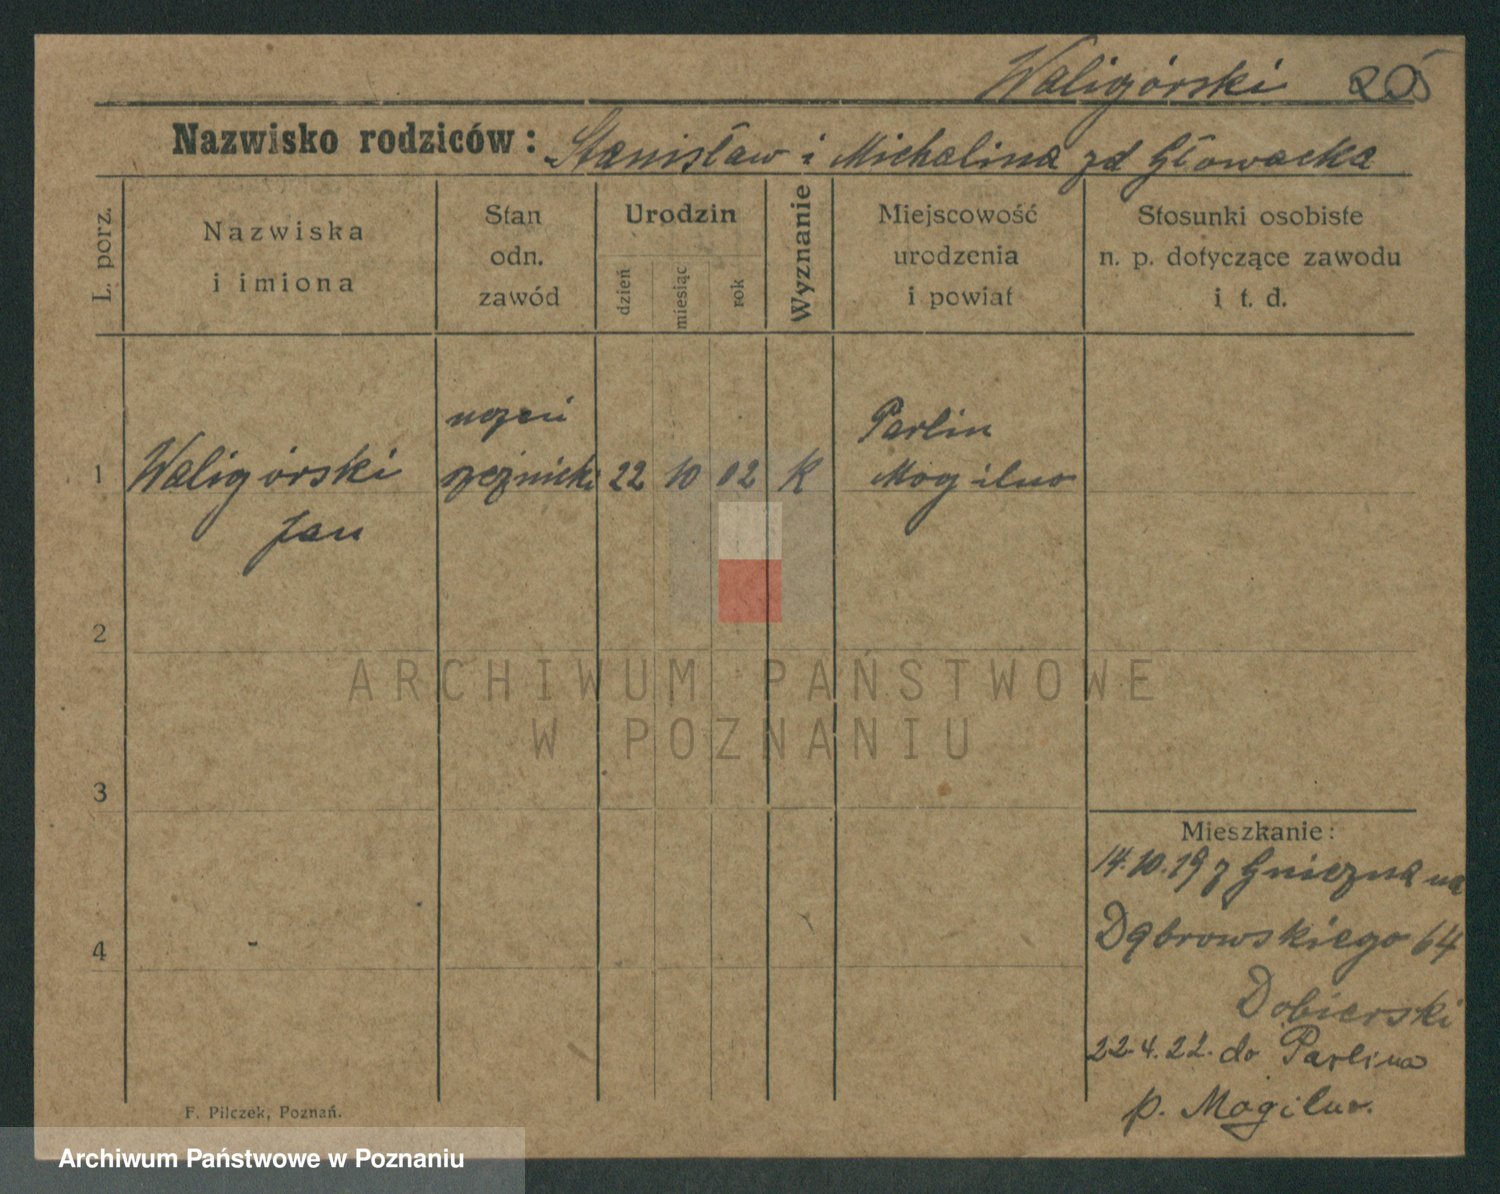 Waligórski 205
Nazwisko rodziców: Stanisław i Michalina zd Głowacka
L. porz.
Nazwiska
i imiona
Stan
odn.
zawód
Urodzin
dzień
miesiąc
rok
Wyznanie
Miejscowość
urodzenia
i powiat
Stosunki osobiste
n. p. dotyczące zawodu
i t. d.
uczeń Parlin
1 Waligórski rzeźnicki 22 10 02 K Mogilno
Jan
2
ARCHIWUM PAŃSTWOWE
W POZNANIU
3
Mieszkanie:
14.10.19 z Gniezna na
Dąbrowskiego 64
4
Dobierski
22.4.22. do Parlina
p. Mogilno.
F. Pilczek, Poznań.
Archiwum Państwowe w Poznaniu